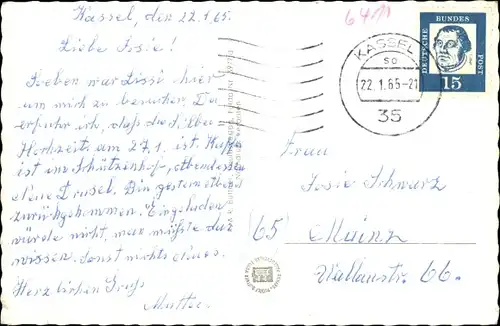 Kassel, den 22.1.65.
Liebe Josie!
Soeben war Lissi hier
um mich zu besuchen. Da
erfuhr ich, daß die
Hochzeit am 27.1. ist. Kaffee
ist im Schützenhof, Abendessen
Neue Drusel. Bin gestern Abend
zurückgekommen. Eingeladen
wurde nicht, man müßte das
wissen. Sonst nichts neues.
Herzlichen Gruß
Mutter.
64M
KASSEL
so
22.1.65-21
35
DEUTSCHE BUNDESPOST
15
Frau
Josie Schwarz
(65) Mainz
Wallaustr. 66.